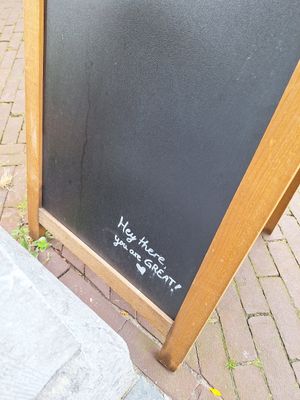 Hey there
you are GREAT!
♥